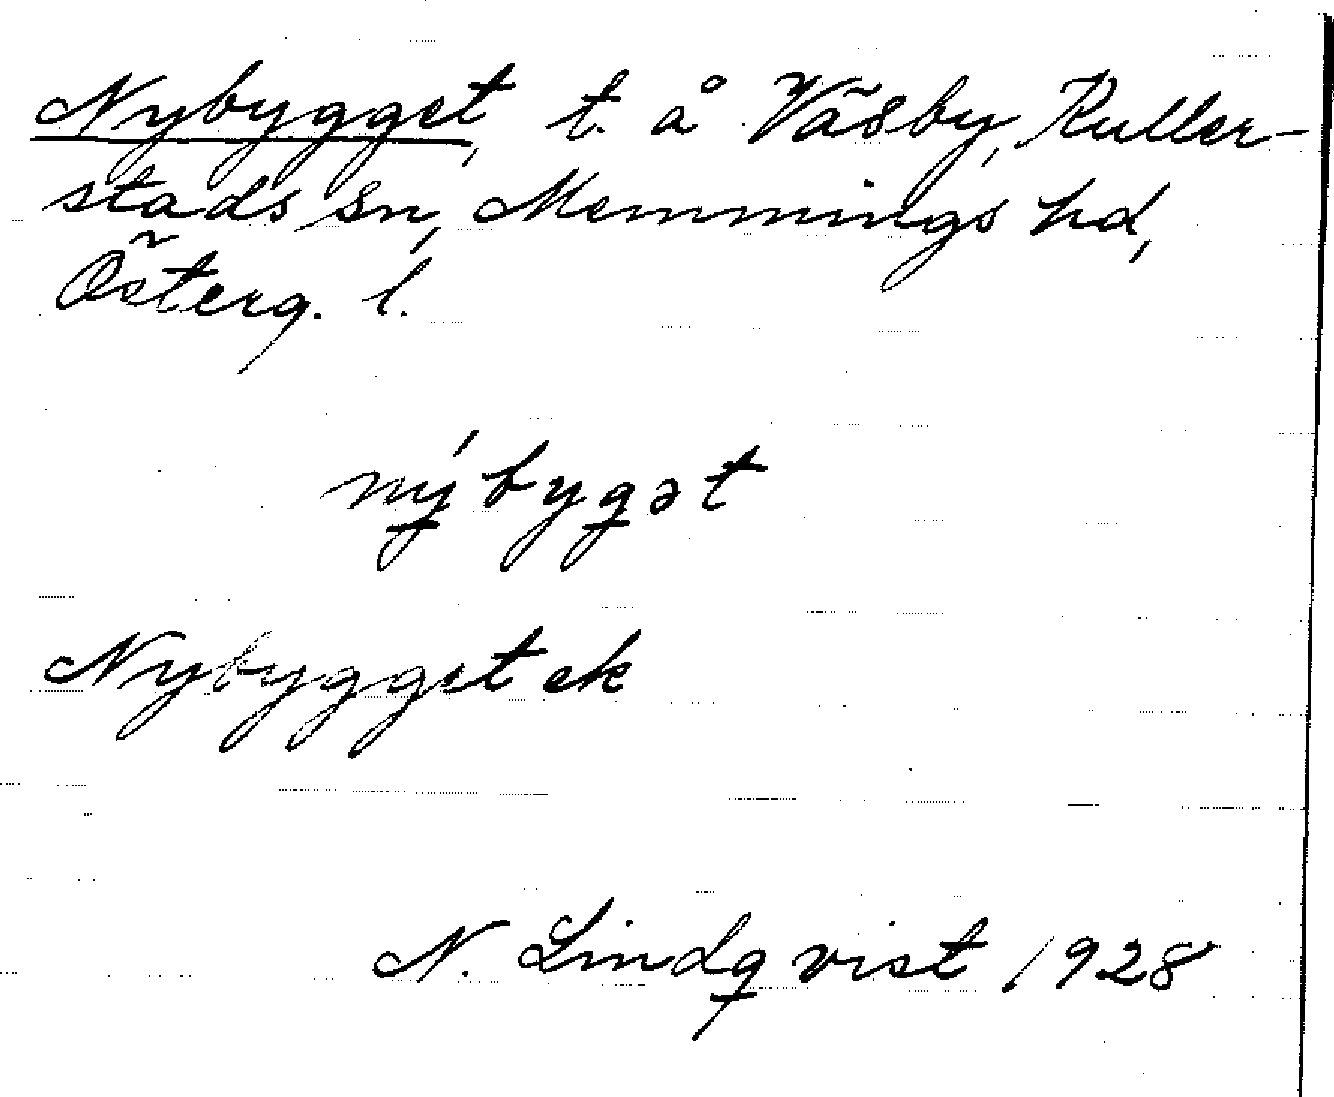 Nybygget, t. å Väsby, Kuller-
stads sn, Memmings hd,
Österg. l.
nýbygət
Nybygget ek
N. Lindqvist 1928